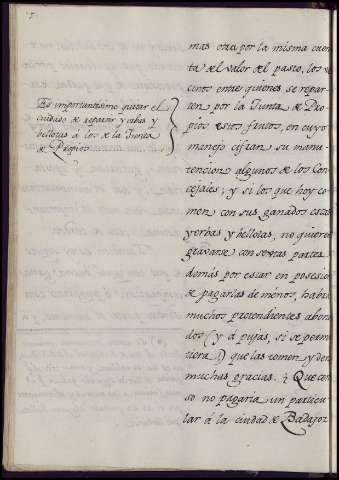 Es importantísimo quitar el
cuidado de repartir yerbas y
bellotas á los de la Junta
de Propios
mas otra por la misma cuen
ta del valor del pasto, los ve
cinos entre quienes se repar
ten por la Junta de Pro
pios estos frutos, en cuyo
manejo cifran su manu
tencion algunos de los Con
cejales; y si los que hoy co
men con sus ganados estas
yerbas y bellotas, no quieren
gravarse con sextas partes
demás por estar en posesion
de pagarlas de ménos, habrá
muchos pretendientes abona
dos (y á pujas, si se permi
tiera) que las tomen y den
muchas gracias. ¿Que cen
so no pagaría un particu
lar á la ciudad de Badajoz